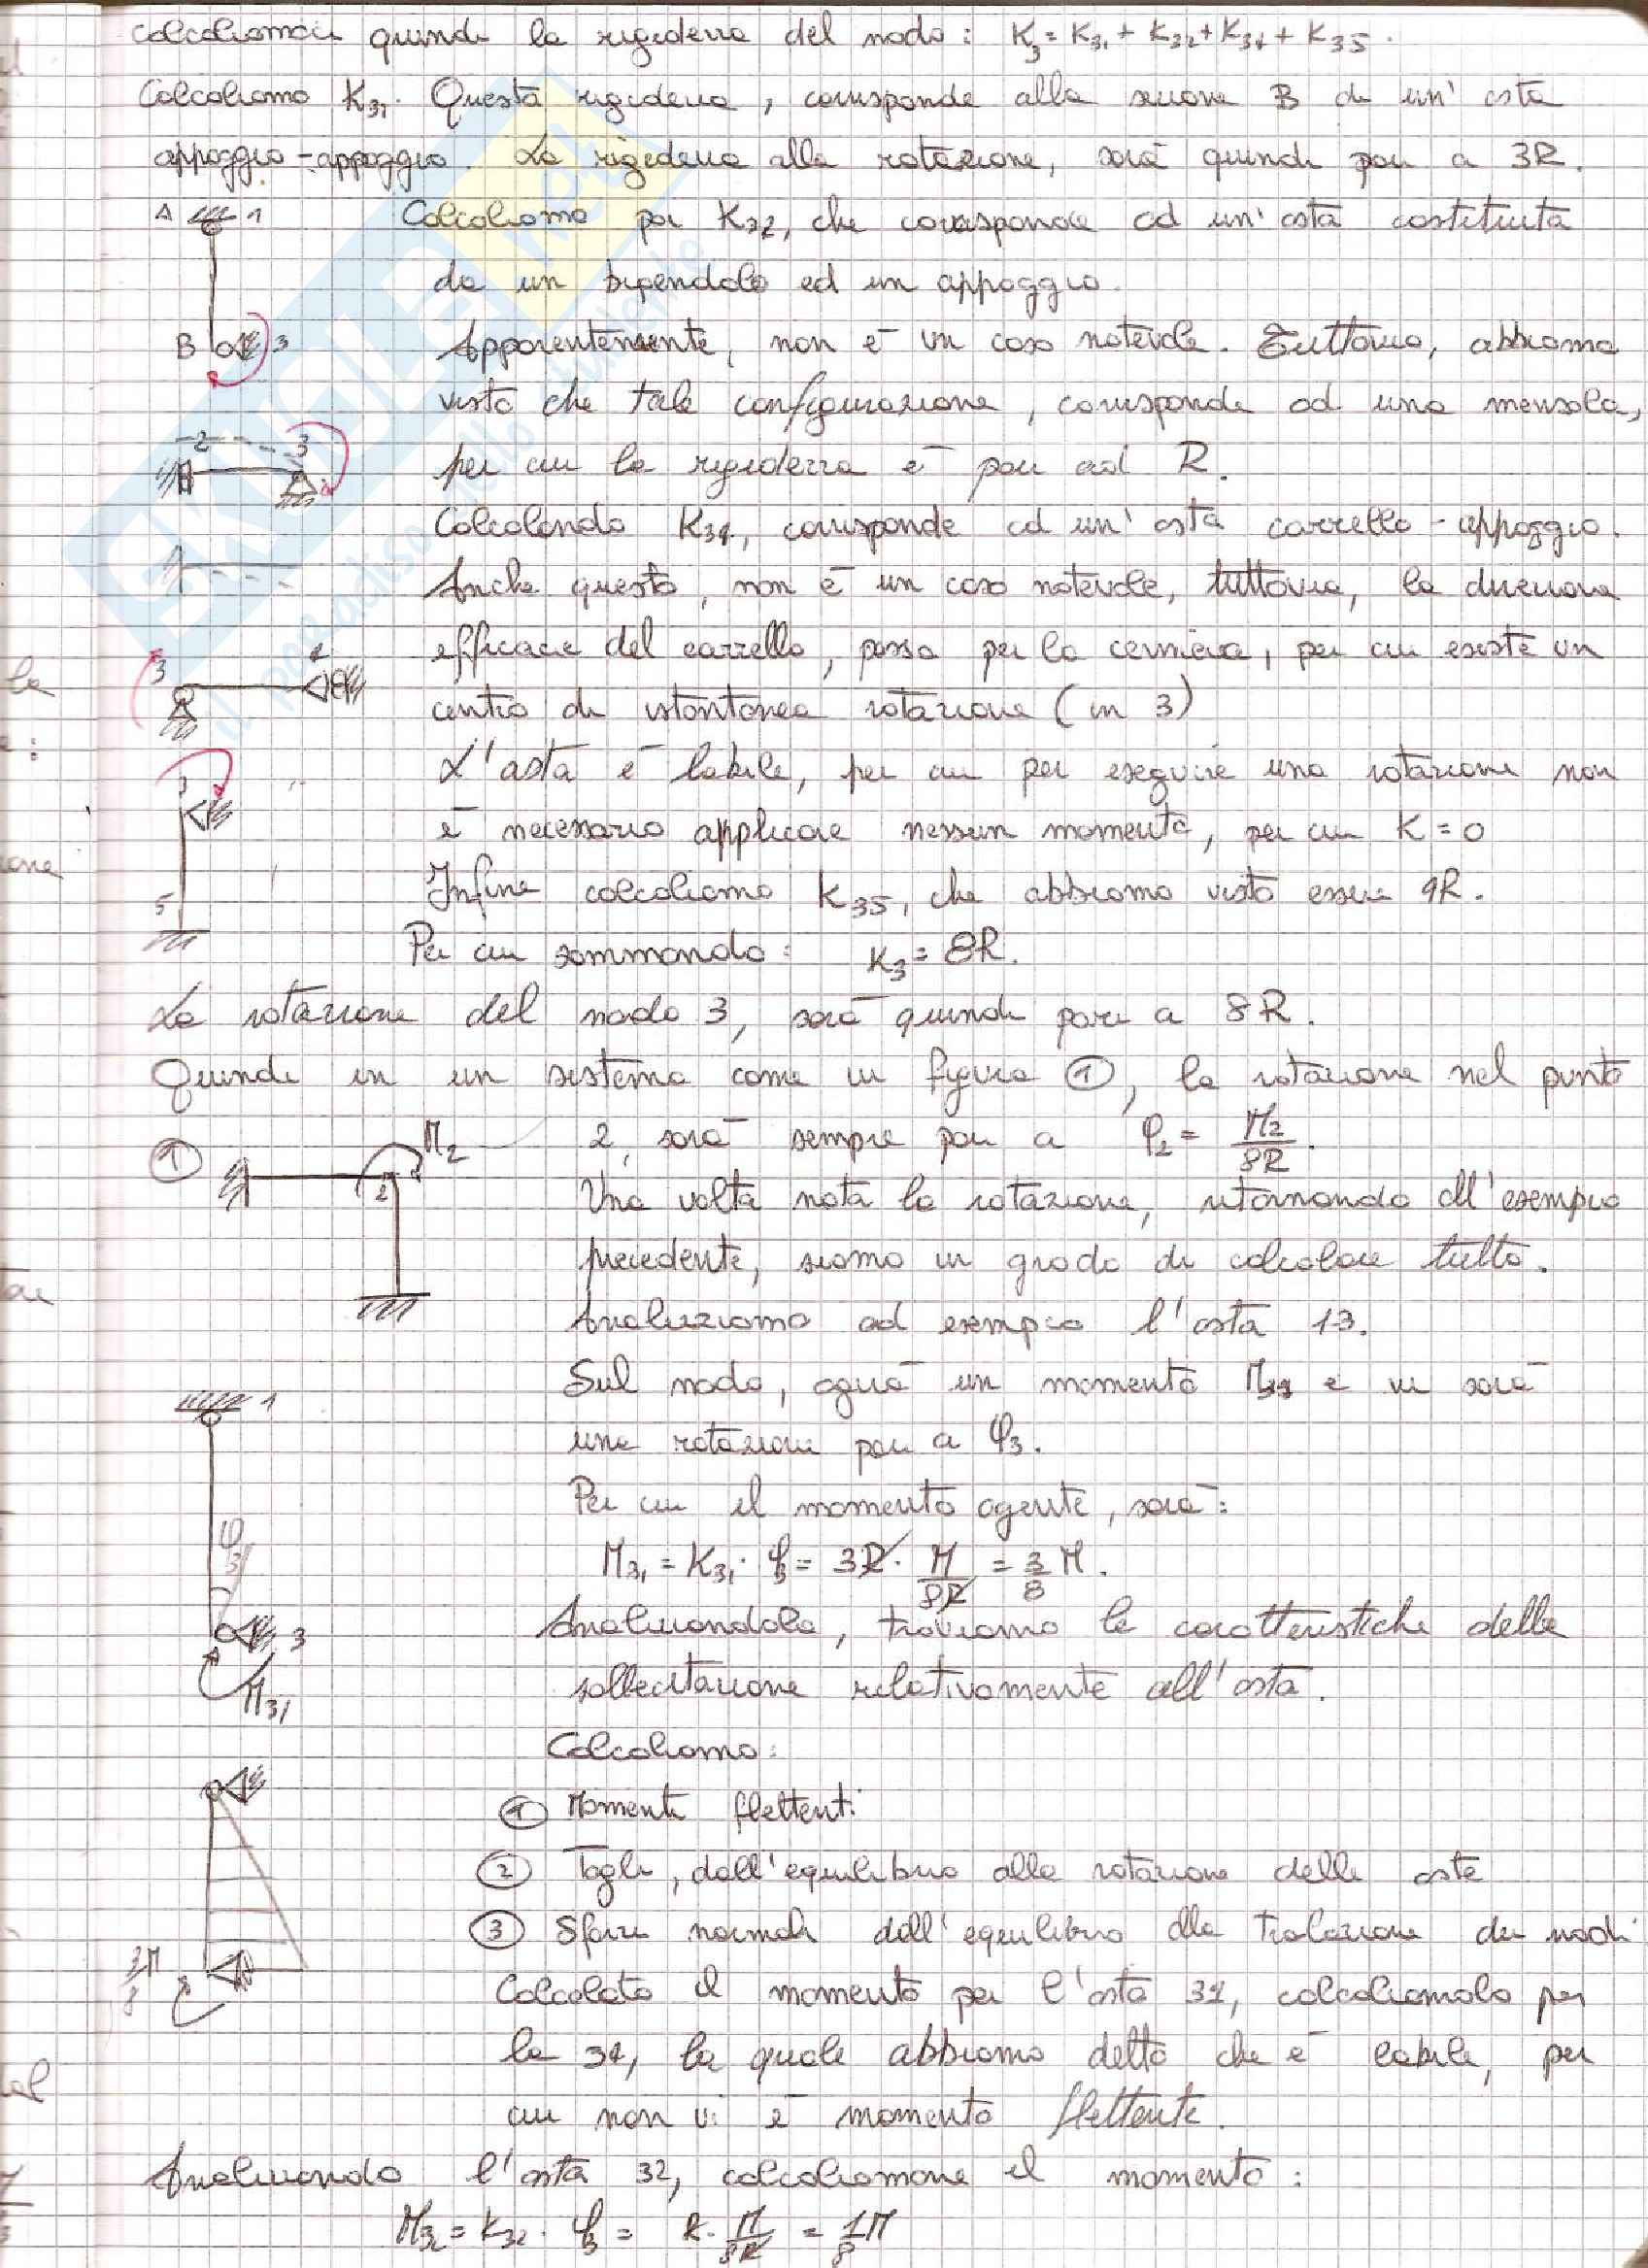 Calcoliamoci quindi la rigidezza del nodo: K3 = K31 + K32 + K34 + K35.
Calcoliamo K31. Questa rigidezza, corrisponde alla sezione B di un'asta
appoggio-appoggio. La rigidezza alla rotazione, sarà quindi pari a 3R.
A 1 Calcoliamo poi K32, che corrisponde ad un'asta costituita
da un bipendolo ed un appoggio.
B 3 Apparentemente, non è un caso notevole. Tuttavia, abbiamo
visto che tale configurazione, corrisponde ad una mensola,
2 3 per cui la rigidezza è pari ad R.
Calcolando K34, corrisponde ad un'asta carrello-appoggio.
Anche questo, non è un caso notevole, tuttavia, la direzione
efficace del carrello, passa per la cerniera, per cui esiste un
3 4 centro di istantanea rotazione (in 3)
L'asta è labile, per cui per eseguire una rotazione non
3 è necessario applicare nessun momento, per cui K=0
Infine calcoliamo K35, che abbiamo visto essere 4R.
5 Per cui sommando: K3 = 8R.
La rotazione del nodo 3, sarà quindi pari a 8R.
Quindi in un sistema come in figura ①, la rotazione nel punto
① M2 2, sarà sempre pari a φ2 = M2/8R.
2 Una volta nota la rotazione, ritornando all'esempio
precedente, siamo in grado di calcolare tutto.
Analizziamo ad esempio l'asta 13.
1 Sul nodo, agirà un momento M31 e vi sarà
una rotazione pari a φ3.
Per cui il momento agente, sarà:
φ3 M31 = K31 · φ3 = 3R · M/8R = 3/8 M.
3 Analizzandola, troviamo le caratteristiche della
M31 sollecitazione relativamente all'asta.
Calcoliamo:
① Momenti flettenti
② Tagli, dall'equilibrio alla rotazione delle aste
③ Sforzi normali dall'equilibrio alla traslazione dei nodi
3/8 M Calcolato il momento per l'asta 31, calcoliamolo per
la 34, la quale abbiamo detto che è labile, per
cui non vi è momento flettente.
Analizzando l'asta 32, calcoliamone il momento:
M32 = K32 · φ3 = R · M/8R = 1/8 M